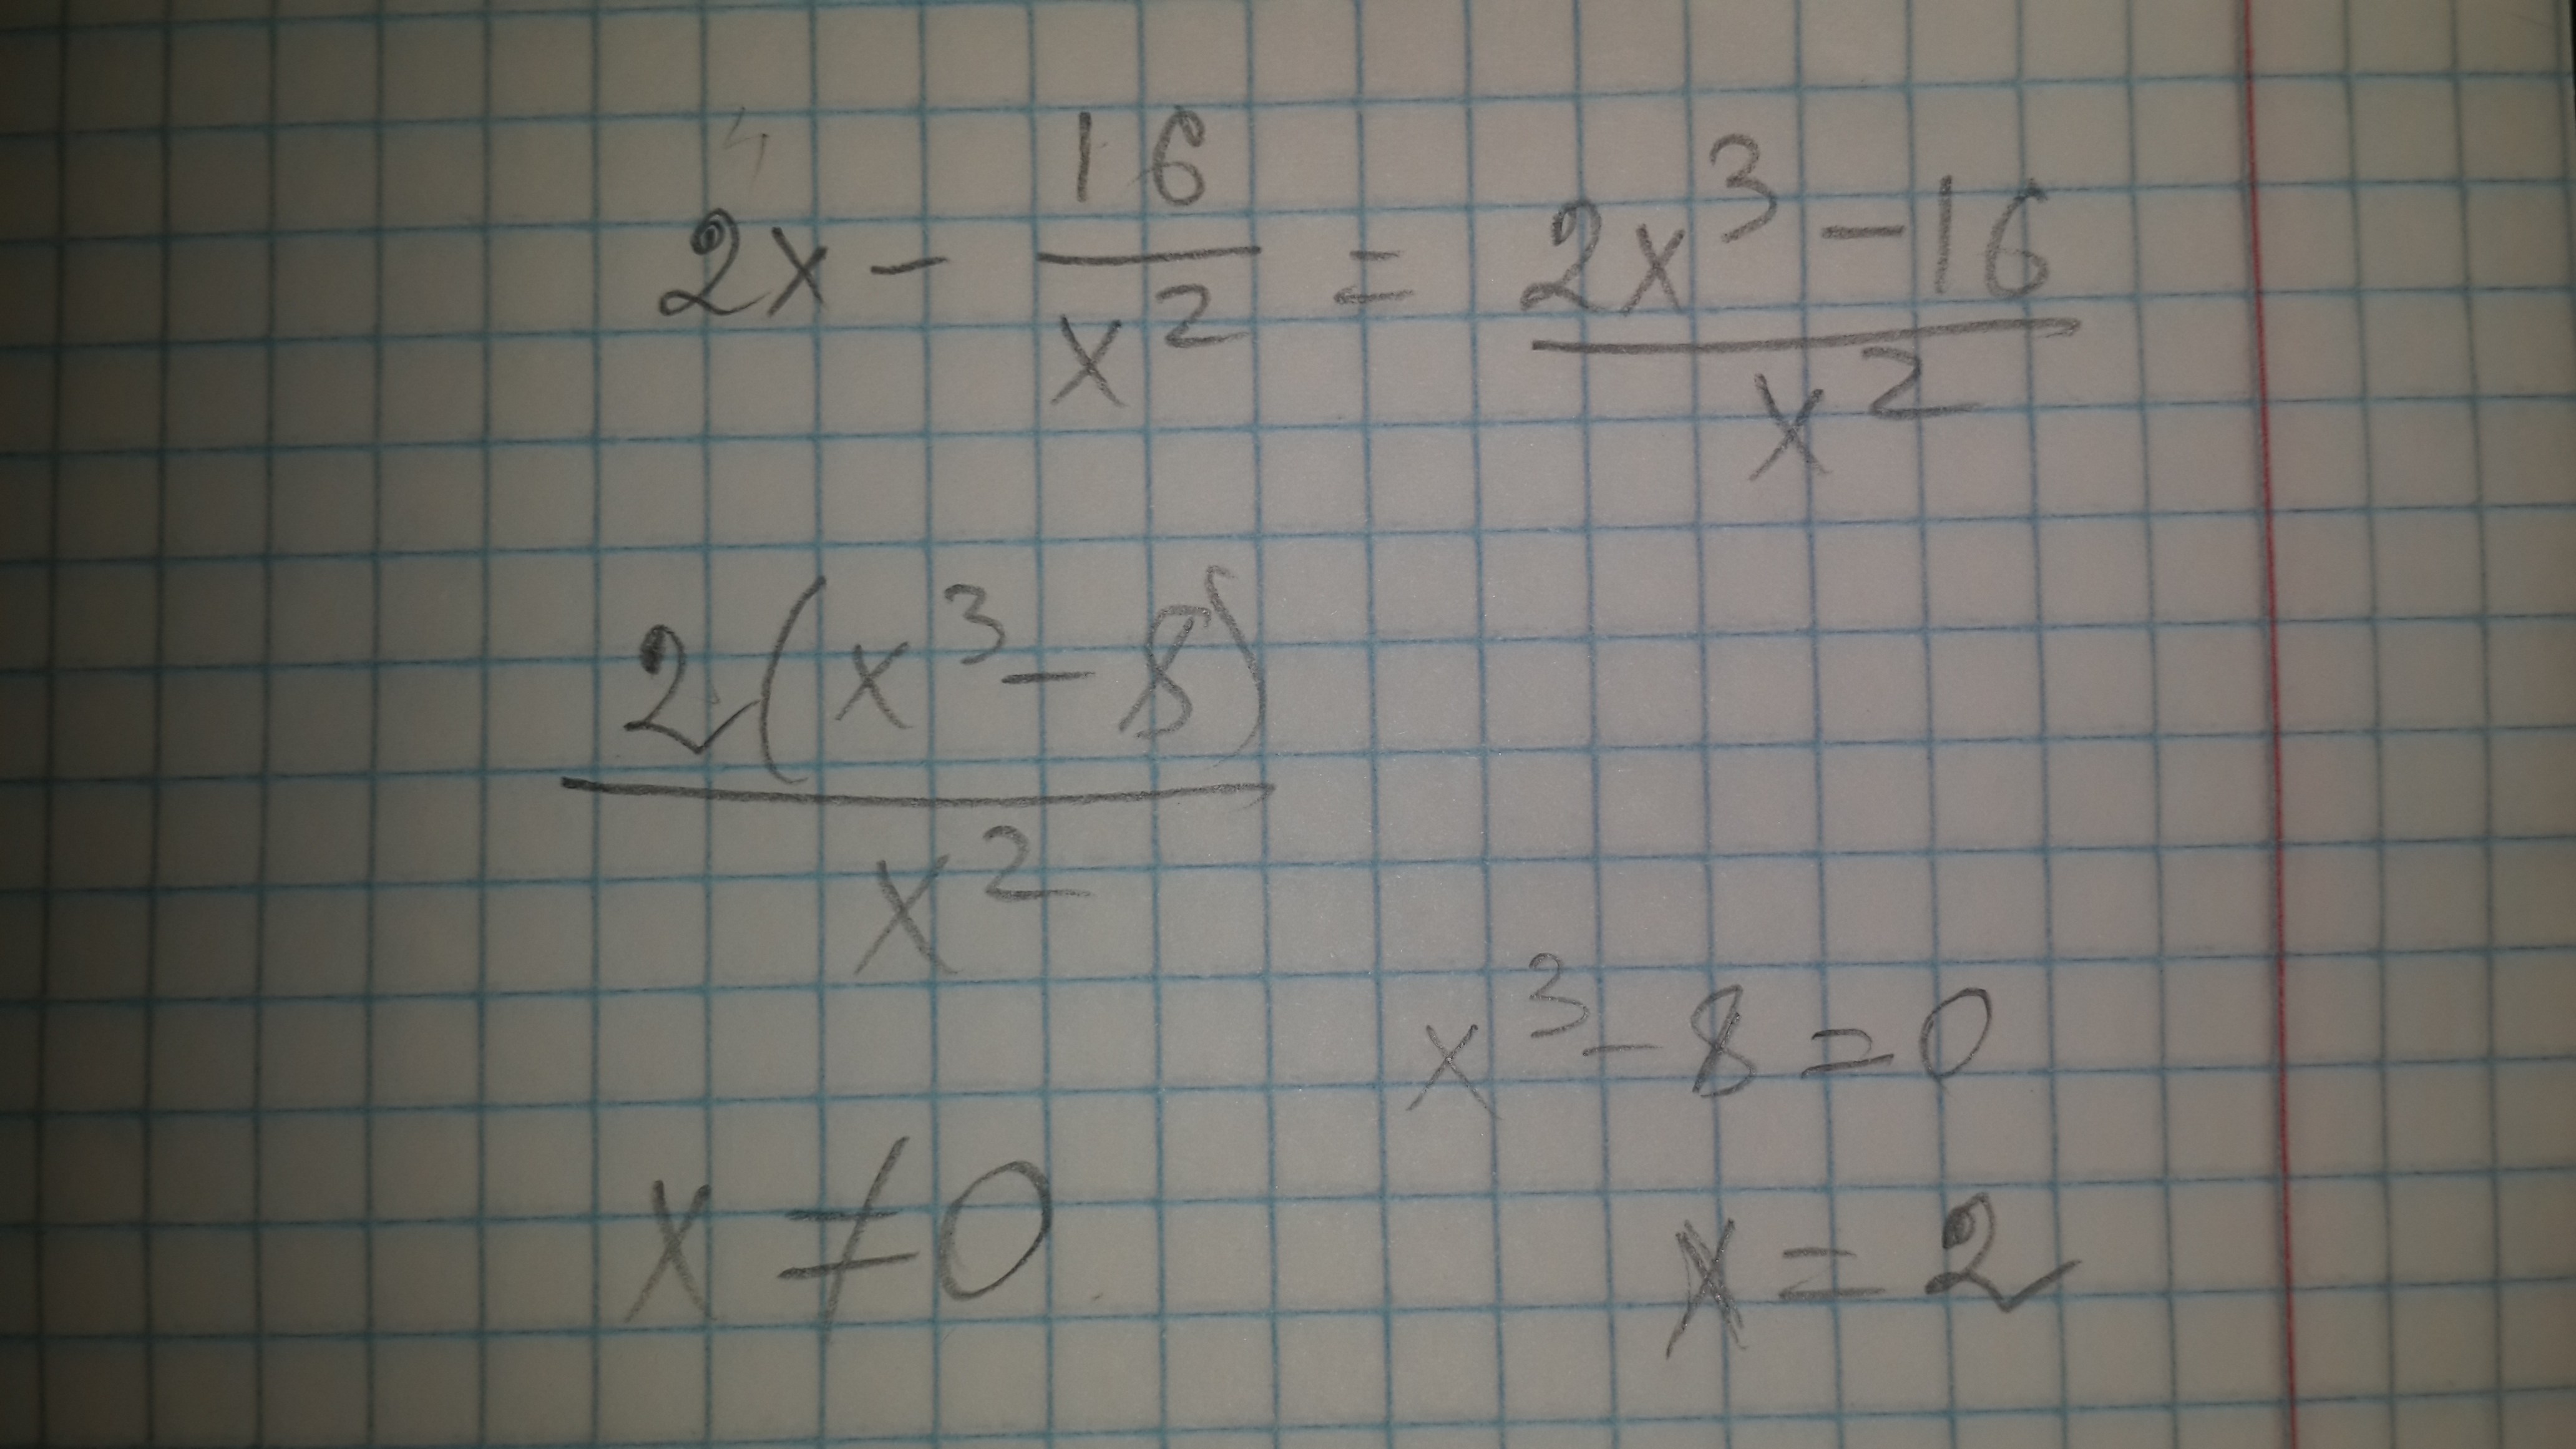 2x - 16/x² = (2x³ - 16)/x²
2(x³ - 8)/x²
x³ - 8 = 0
x ≠ 0
x = 2